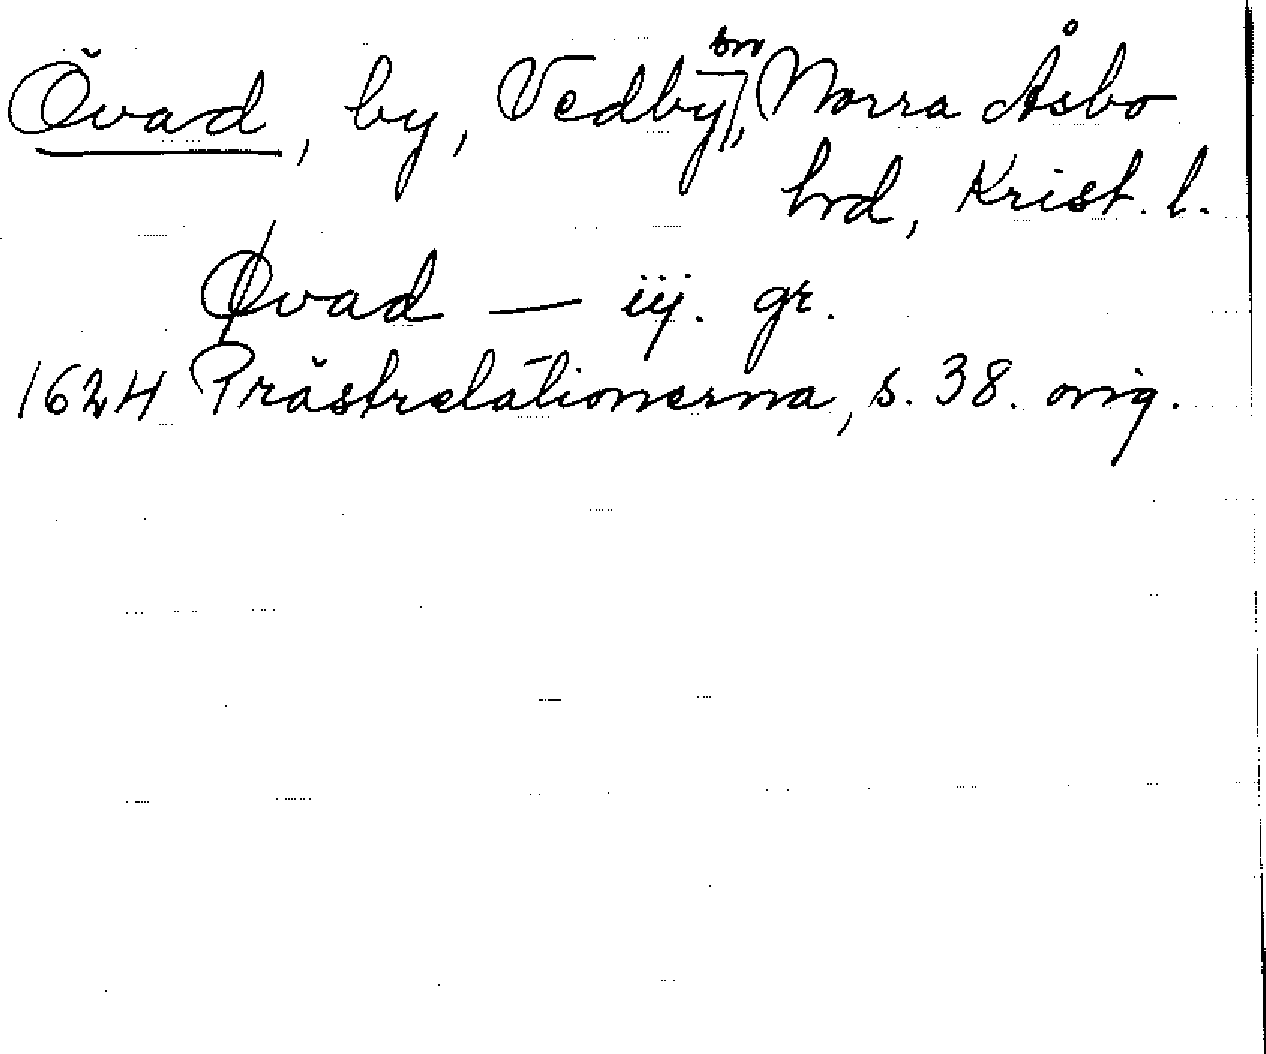 Övad, by, Vedby sn, Norra Åsbo
hrd, Krist. l.
Øvad — iij. gr.
1624 Prästrelationerna, s. 38. orig.